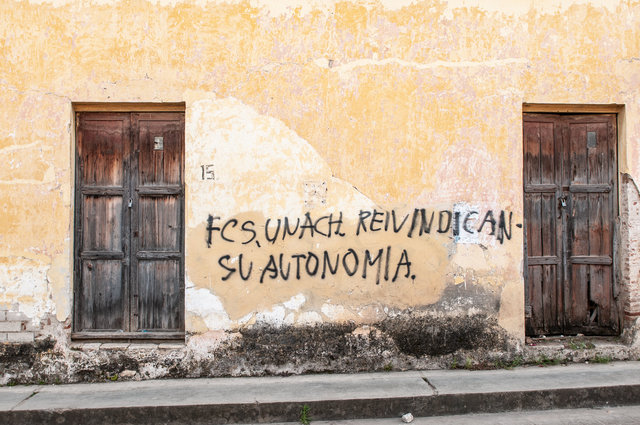 15
FCS, UNACH. REIVINDICAN-
SU AUTONOMIA.